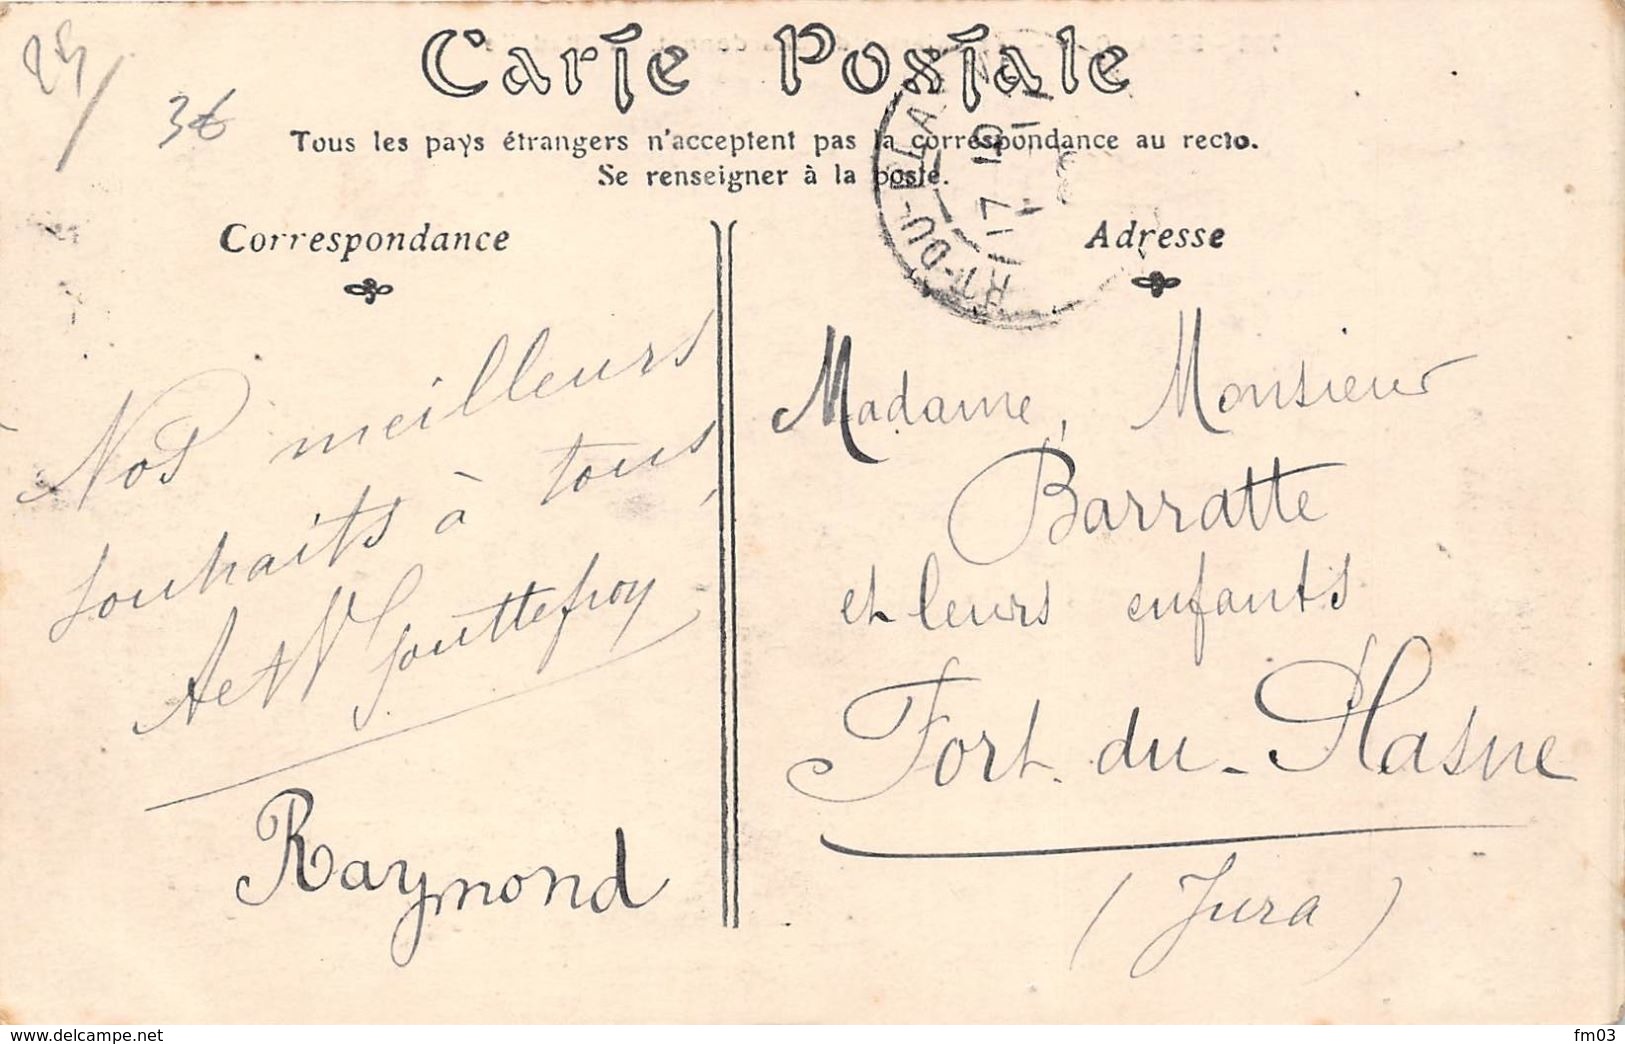 25/
3€
Carte Postale
Tous les pays étrangers n'acceptent pas la correspondance au recto.
Se renseigner à la poste.
Correspondance
Nos meilleurs
souhaits à tous,
A et V Gouttefroy
Raymond
RT-DU-PLA
17
Adresse
Madame, Monsieur
Barratte
et leurs enfants
Fort-du-Plasne
(Jura)
www.delcampe.net
fm03